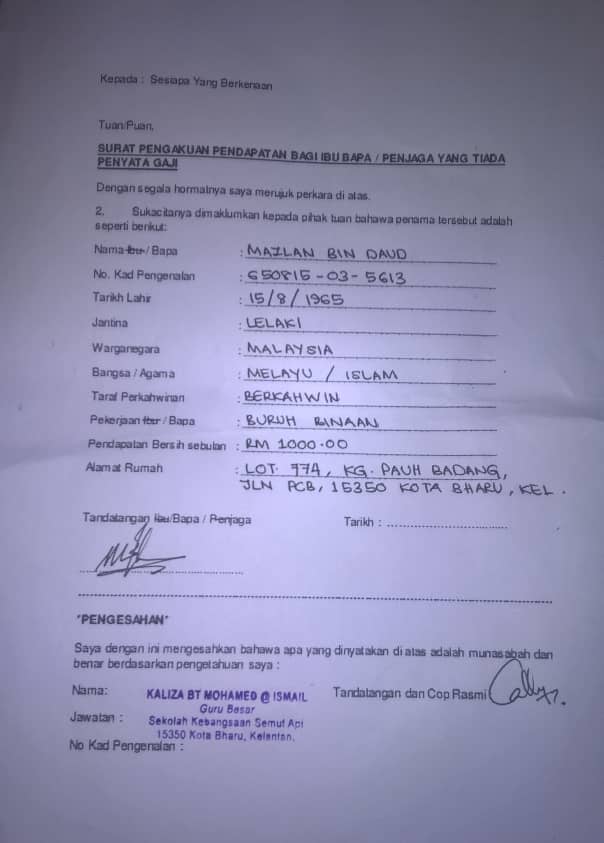 Kepada : Sesiapa Yang Berkenaan
Tuan/Puan,
SURAT PENGAKUAN PENDAPATAN BAGI IBU BAPA / PENJAGA YANG TIADA
PENYATA GAJI
Dengan segala hormatnya saya merujuk perkara di atas.
2. Sukacitanya dimaklumkan kepada pihak tuan bahawa penama tersebut adalah
seperti berikut:
Nama Ibu / Bapa : MAZLAN BIN DAUD
No. Kad Pengenalan : 650815-03-5613
Tarikh Lahir : 15/8/1965
Jantina : LELAKI
Warganegara : MALAYSIA
Bangsa / Agama : MELAYU / ISLAM
Taraf Perkahwinan : BERKAHWIN
Pekerjaan Ibu / Bapa : BURUH BINAAN
Pendapatan Bersih sebulan : RM 1000.00
Alamat Rumah : LOT. 774, KG. PAUH BADANG,
JLN PCB, 15350 KOTA BHARU, KEL.
Tandatangan Ibu/Bapa / Penjaga Tarikh : ................................
*PENGESAHAN*
Saya dengan ini mengesahkan bahawa apa yang dinyatakan di atas adalah munasabah dan
benar berdasarkan pengetahuan saya :
Nama: KALIZA BT MOHAMED @ ISMAIL Tandatangan dan Cop Rasmi
Guru Besar
Jawatan : Sekolah Kebangsaan Semut Api
15350 Kota Bharu, Kelantan.
No Kad Pengenalan :